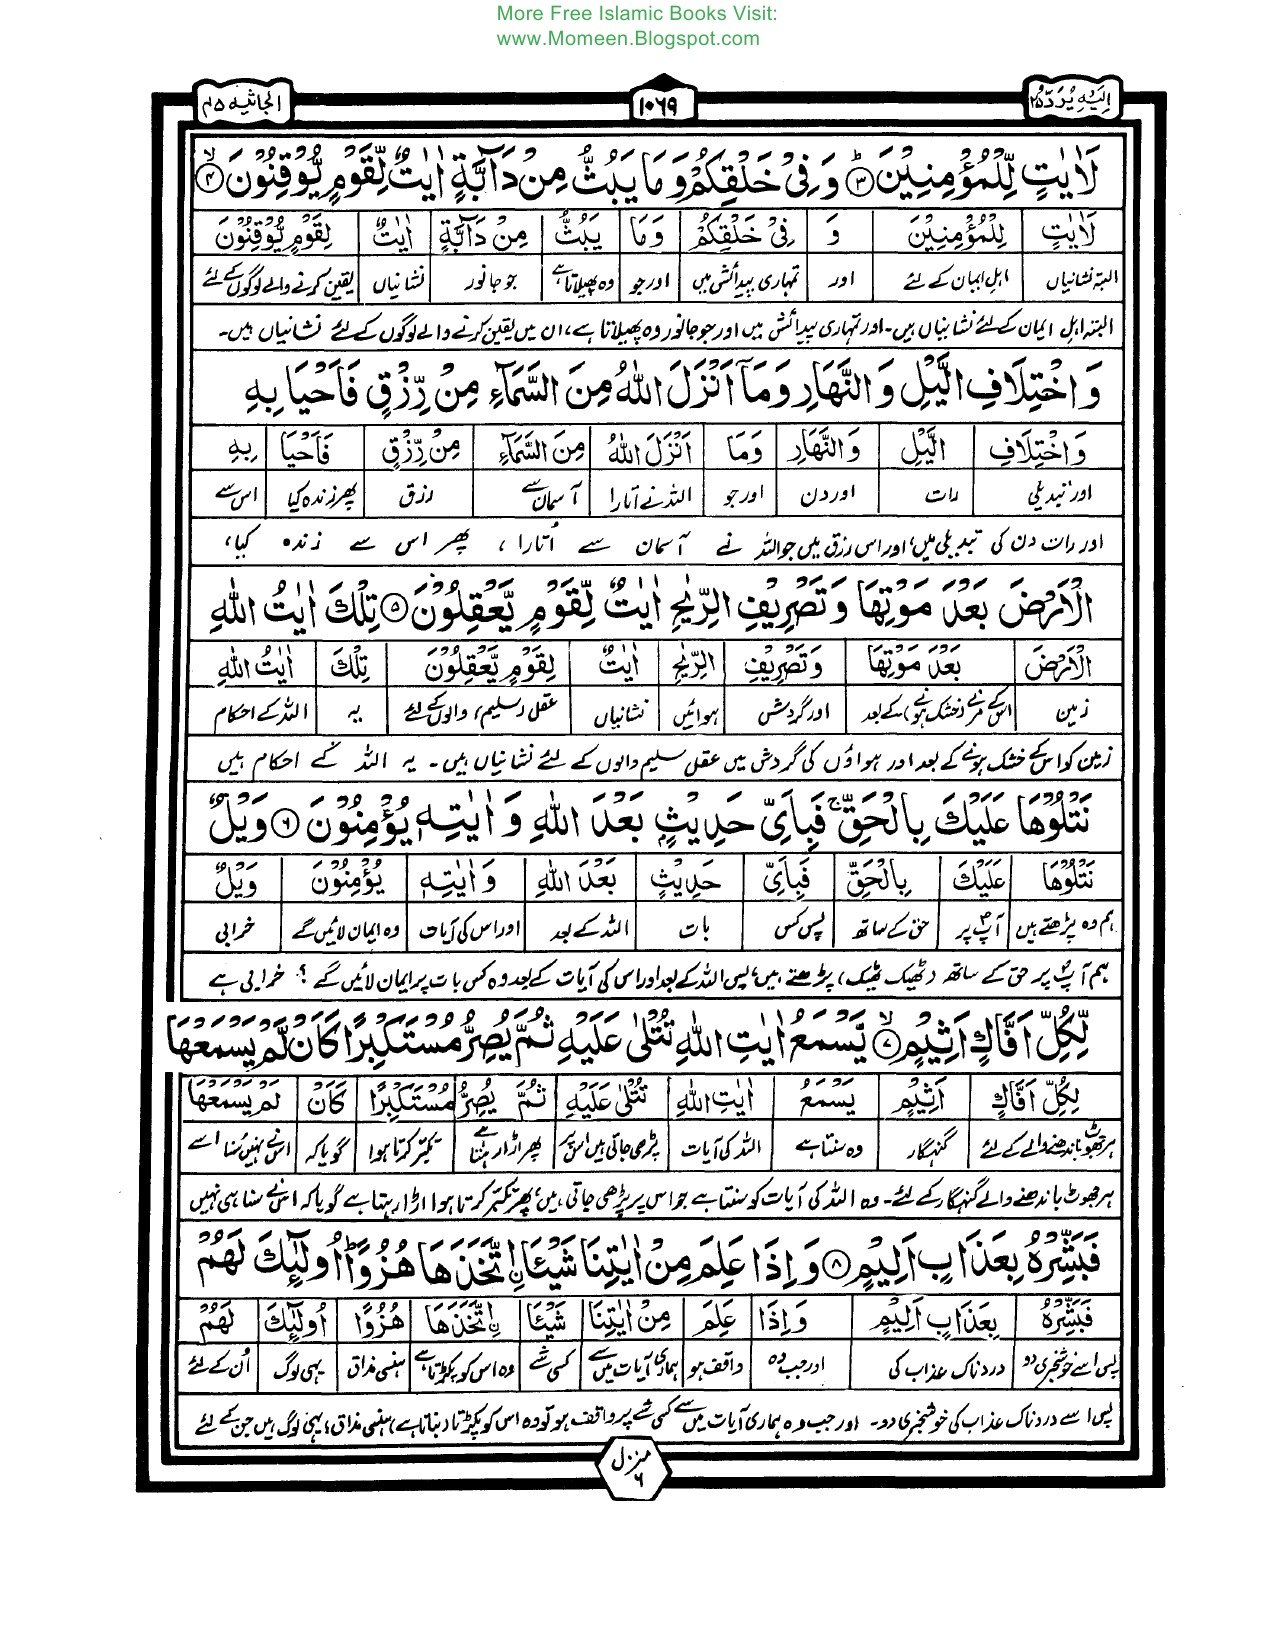 More Free Islamic Books Visit:
www.Momeen.Blogspot.com
الجاثیه ۴۵
۱۰۶۹
اِلَیْهِ یُرَدُّ ۲۵
لَاٰیٰتٍ لِّلْمُؤْمِنِیْنَ ؕ۳ وَ فِیْ خَلْقِكُمْ وَ مَا یَبُثُّ مِنْ دَآبَّةٍ اٰیٰتٌ لِّقَوْمٍ یُّوْقِنُوْنَ ۙ۴
لَاٰیٰتٍ لِلْمُؤْمِنِیْنَ وَ فِیْ خَلْقِكُمْ وَمَا یَبُثُّ مِنْ دَآبَّةٍ اٰیٰتٌ لِقَوْمٍ یُّوْقِنُوْنَ
البتہ نشانیاں اہل ایمان کے لئے اور تمہاری پیدائش میں اور جو وہ پھیلاتا ہے جو جانور نشانیاں یقین کرنے والے لوگوں کے لئے
البتہ اہل ایمان کے لئے نشانیاں ہیں۔ اور تمہاری پیدائش میں اور جو جانور وہ پھیلاتا ہے، ان میں یقین کرنے والے لوگوں کے لئے نشانیاں ہیں۔
وَ اخْتِلَافِ الَّیْلِ وَ النَّهَارِ وَ مَاۤ اَنْزَلَ اللّٰهُ مِنَ السَّمَآءِ مِنْ رِّزْقٍ فَاَحْیَا بِهِ
وَ اخْتِلَافِ الَّیْلِ وَ النَّهَارِ وَمَا اَنْزَلَ اللّٰهُ مِنَ السَّمَآءِ مِنْ رِّزْقٍ فَاَحْیَا بِهِ
اور تبدیلی رات اور دن اور جو اللہ نے اتارا آسمان سے رزق پھر زندہ کیا اس سے
اور رات دن کی تبدیلی میں، اور اس رزق میں جو اللہ نے آسمان سے اُتارا، پھر اس سے زندہ کیا،
الْاَرْضَ بَعْدَ مَوْتِهَا وَ تَصْرِیْفِ الرِّیٰحِ اٰیٰتٌ لِّقَوْمٍ یَّعْقِلُوْنَ ۵ تِلْكَ اٰیٰتُ اللّٰهِ
الْاَرْضَ بَعْدَ مَوْتِهَا وَ تَصْرِیْفِ الرِّیٰحِ اٰیٰتٌ لِقَوْمٍ یَّعْقِلُوْنَ تِلْكَ اٰیٰتُ اللّٰهِ
زمین اس کے مرنے (خشک ہونے) کے بعد اور گردش ہوائیں نشانیاں عقل (سلیم) والوں کے لئے یہ اللہ کے احکام
زمین کو اس کے خشک ہونے کے بعد اور ہواؤں کی گردش میں عقل سلیم والوں کے لئے نشانیاں ہیں۔ یہ اللہ کے احکام ہیں
نَتْلُوْهَا عَلَیْكَ بِالْحَقِّ ۚ فَبِاَیِّ حَدِیْثٍۭ بَعْدَ اللّٰهِ وَ اٰیٰتِهٖ یُؤْمِنُوْنَ ۶ وَیْلٌ
نَتْلُوْهَا عَلَیْكَ بِالْحَقِّ فَبِاَیِّ حَدِیْثٍ بَعْدَ اللّٰهِ وَ اٰیٰتِهٖ یُؤْمِنُوْنَ وَیْلٌ
ہم وہ پڑھتے ہیں آپؐ پر حق کے ساتھ پس کس بات اللہ کے بعد اور اس کی آیات وہ ایمان لائیں گے خرابی
ہم آپؐ پر حق کے ساتھ (ٹھیک ٹھیک) پڑھتے ہیں، پس اللہ کے بعد اور اس کی آیات کے بعد وہ کس بات پر ایمان لائیں گے؟ خرابی ہے
لِّكُلِّ اَفَّاكٍ اَثِیْمٍ ۙ۷ یَّسْمَعُ اٰیٰتِ اللّٰهِ تُتْلٰى عَلَیْهِ ثُمَّ یُصِرُّ مُسْتَكْبِرًا كَاَنْ لَّمْ یَسْمَعْهَا
لِكُلِّ اَفَّاكٍ اَثِیْمٍ یَسْمَعُ اٰیٰتِ اللّٰهِ تُتْلٰى عَلَیْهِ ثُمَّ یُصِرُّ مُسْتَكْبِرًا كَاَنْ لَمْ یَسْمَعْهَا
ہر جھوٹ باندھنے والے کے لئے گنہگار وہ سنتا ہے اللہ کی آیات پڑھی جاتی ہیں اس پر پھر اڑا رہتا ہے تکبر کرتا ہوا گویا کہ اس نے نہیں سُنا اسے
ہر جھوٹ باندھنے والے گنہگار کے لئے۔ وہ اللہ کی آیات کو سنتا ہے جو اس پر پڑھی جاتی ہیں، پھر تکبر کرتا ہوا اڑا رہتا ہے گویا کہ اس نے سنا ہی نہیں
فَبَشِّرْهُ بِعَذَابٍ اَلِیْمٍ ۸ وَ اِذَا عَلِمَ مِنْ اٰیٰتِنَا شَیْئَا ِ۟اتَّخَذَهَا هُزُوًا ؕ اُولٰٓئِكَ لَهُمْ
فَبَشِّرْهُ بِعَذَابٍ اَلِیْمٍ وَ اِذَا عَلِمَ مِنْ اٰیٰتِنَا شَیْئَا ِ۟اتَّخَذَهَا هُزُوًا اُولٰٓئِكَ لَهُمْ
پس اسے خوشخبری دو دردناک عذاب کی اور جب وہ واقف ہو ہماری آیات میں سے کسی شے وہ اس کو پکڑتا ہے ہنسی مذاق یہی لوگ اُن کے لئے
پس اسے دردناک عذاب کی خوشخبری دو۔ اور جب وہ ہماری آیات میں سے کسی شے پر واقف ہو تو وہ اس کو پکڑتا (بناتا ہے) ہنسی مذاق، یہی لوگ ہیں جن کے لئے
منزل ۶